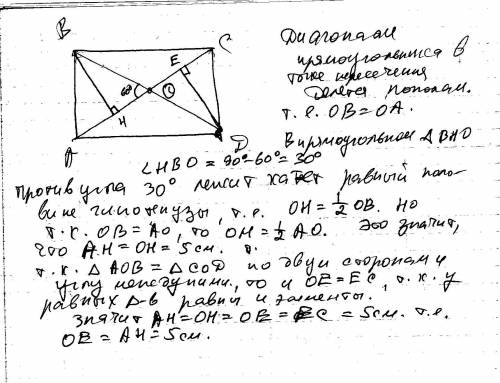 B
E
C
60°
O
H
A
D
Диагонали
прямоугольника в
точке пересечения
делятся пополам.
т.е. OB=OA.
В прямоугольном △BHO
∠HBO = 90°-60°=30°
Против угла 30° лежит катет равный поло-
вине гипотенузы, т.е. OH=1/2 OB. Но
т.к. OB=AO, то OH=1/2 AO. Это значит,
что AH=OH=5см. т.
т.к. △AOB=△COD по двум сторонам и
углу между ними, то и OE=EC, т.к. у
равных △-в равны и элементы.
Значит AH=OH=OE=EC=5см. т.е.
OE=AH=5см.